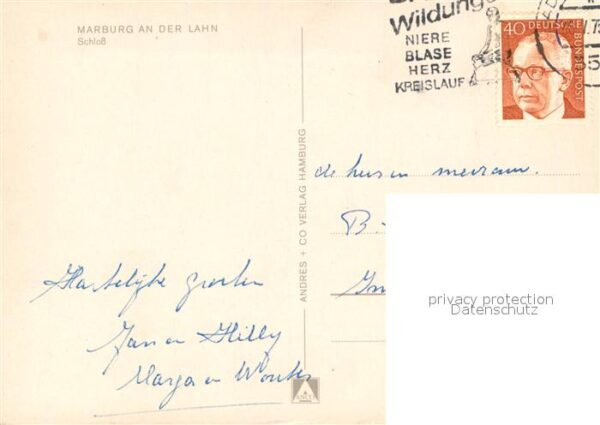 MARBURG AN DER LAHN
Schloß
Wildung
NIERE
BLASE
HERZ
KREISLAUF
40 DEUTSCHE BUNDESPOST
ANDRES + CO VERLAG HAMBURG
de heer en mevrouw
B.
privacy protection
Datenschutz
Hartelijke groeten
Jan en Hilly
Marga en Wouter